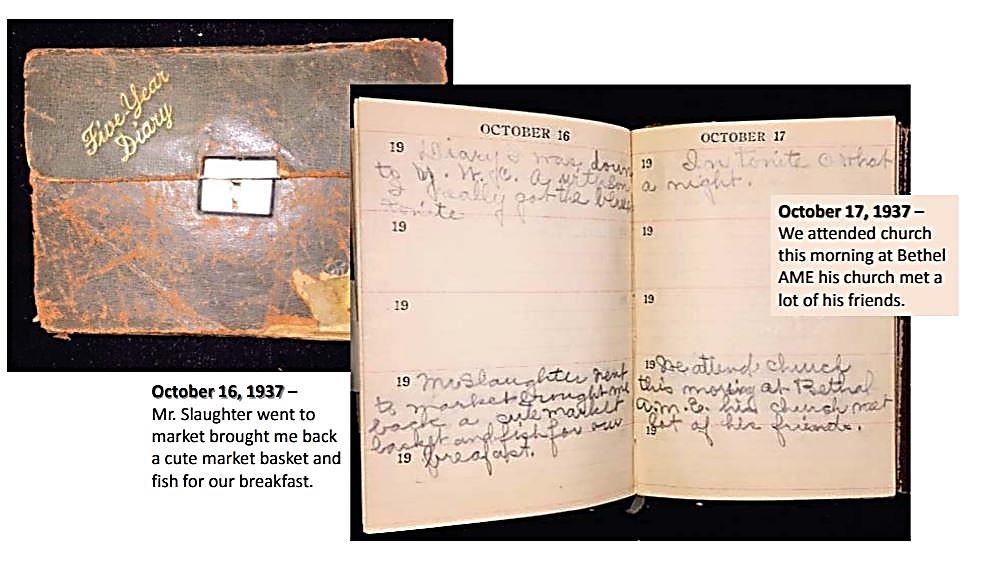 Five Year
Diary
OCTOBER 16
19 Diary I was down
to Y. W. C. A with
I really got the
tonite
19
19
19 Mr Slaughter went
to market brought me
back a cute market
basket and fish for our
19 breafast.
OCTOBER 17
19 In tonite O what
a night.
19
19
19 We attend church
this morning at Bethal
A.M.E. his church met
19 lot of his friends.
October 16, 1937 –
Mr. Slaughter went to
market brought me back
a cute market basket and
fish for our breakfast.
October 17, 1937 –
We attended church
this morning at Bethel
AME his church met a
lot of his friends.